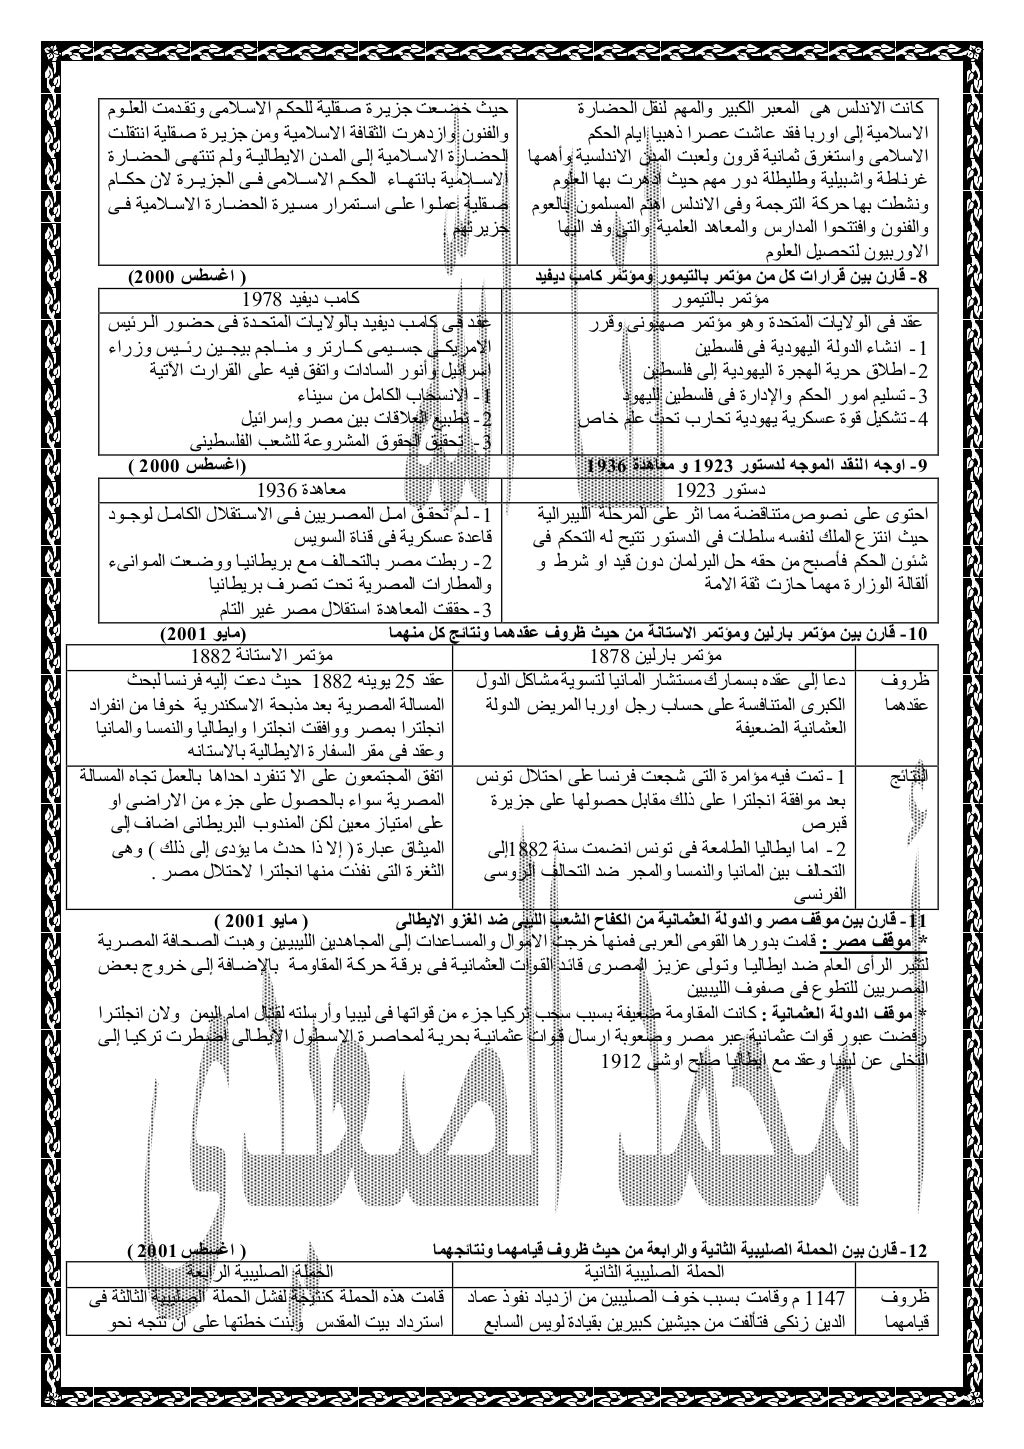 كانت الاندلس هى المعبر الكبير والمهم لنقل الحضارة
الاسلامية إلى اوربا فقد عاشت عصرا ذهبيا ايام الحكم
الاسلامى واستغرق ثمانية قرون ولعبت المدن الاندلسية وأهمها
غرناطة واشبيلية وطليطلة دور مهم حيث ازهرت بها العلوم
ونشطت بها حركة الترجمة وفى الاندلس اهتم المسلمون بالعوم
والفنون وافتتحوا المدارس والمعاهد العلمية والتى وفد اليها
الاوربيون لتحصيل العلوم
حيث خضعت جزيرة صقلية للحكم الاسلامى وتقدمت العلوم
والفنون وازدهرت الثقافة الاسلامية ومن جزيرة صقلية انتقلت
الحضارة الاسلامية إلى المدن الايطالية ولم تنتهى الحضارة
الاسلامية بانتهاء الحكم الاسلامى فى الجزيرة لان حكام
صقلية عملوا على استمرار مسيرة الحضارة الاسلامية فى
جزيرتهم .
8- قارن بين قرارات كل من مؤتمر بالتيمور ومؤتمر كامب ديفيد ( اغسطس 2000)
مؤتمر بالتيمور
كامب ديفيد 1978
عقد فى الولايات المتحدة وهو مؤتمر صهيونى وقرر
1- انشاء الدولة اليهودية فى فلسطين
2- اطلاق حرية الهجرة اليهودية إلى فلسطين
3- تسليم امور الحكم والإدارة فى فلسطين لليهود
4- تشكيل قوة عسكرية يهودية تحارب تحت علم خاص
عقد فى كامب ديفيد بالولايات المتحدة فى حضور الرئيس
الامريكى جسيمى كارتر و مناجم بيجين رئيس وزراء
اسرائيل وأنور السادات واتفق فيه على القرارت الآتية
1- الانسحاب الكامل من سيناء
2- تطبيع العلاقات بين مصر وإسرائيل
3- تحقيق الحقوق المشروعة للشعب الفلسطينى
9- اوجه النقد الموجه لدستور 1923 و معاهدة 1936 (اغسطس 2000 )
دستور 1923
معاهدة 1936
احتوى على نصوص متناقضة مما اثر على المرحلة الليبرالية
حيث انتزع الملك لنفسه سلطات فى الدستور تتيح له التحكم فى
شئون الحكم فأصبح من حقه حل البرلمان دون قيد او شرط و
ألقالة الوزارة مهما حازت ثقة الامة
1- لم تحقق امل المصريين فى الاستقلال الكامل لوجود
قاعدة عسكرية فى قناة السويس
2- ربطت مصر بالتحالف مع بريطانيا ووضعت الموانىء
والمطارات المصرية تحت تصرف بريطانيا
3- حققت المعاهدة استقلال مصر غير التام
10- قارن بين مؤتمر بارلين ومؤتمر الاستانة من حيث ظروف عقدهما ونتائج كل منهما (مايو 2001)
مؤتمر بارلين 1878
مؤتمر الاستانة 1882
ظروف
عقدهما
دعا إلى عقده بسمارك مستشار المانيا لتسوية مشاكل الدول
الكبرى المتنافسة على حساب رجل اوربا المريض الدولة
العثمانية الضعيفة
عقد 25 يوينه 1882 حيث دعت إليه فرنسا لبحث
المسالة المصرية بعد مذبحة الاسكندرية خوفا من انفراد
انجلترا بمصر ووافقت انجلترا وايطاليا والنمسا والمانيا
وعقد فى مقر السفارة الايطالية بالاستانه
النتائج
1- تمت فيه مؤامرة التى شجعت فرنسا على احتلال تونس
بعد موافقة انجلترا على ذلك مقابل حصولها على جزيرة
قبرص
2- اما ايطاليا الطامعة فى تونس انضمت سنة 1882إلى
التحالف بين المانيا والنمسا والمجر ضد التحالف الروسى
الفرنسى
اتفق المجتمعون على الا تنفرد احداها بالعمل تجاه المسالة
المصرية سواء بالحصول على جزء من الاراضى او
على امتياز معين لكن المندوب البريطانى اضاف إلى
الميثاق عبارة ( إلا ذا حدث ما يؤدى إلى ذلك ) وهى
الثغرة التى نفذت منها انجلترا لاحتلال مصر .
11- قارن بين موقف مصر والدولة العثمانية من الكفاح الشعب الليبى ضد الغزو الايطالى ( مايو 2001 )
* موقف مصر : قامت بدورها القومى العربى فمنها خرجت الاموال والمساعدات إلى المجاهدين الليبيين وهبت الصحافة المصرية
لتثير الرأى العام ضد ايطاليا وتولى عزيز المصرى قائد القوات العثمانية فى برقة حركة المقاومة بالإضافة إلى خروج بعض
المصريين للتطوع فى صفوف الليبيين
* موقف الدولة العثمانية : كانت المقاومة ضعيفة بسبب سحب تركيا جزء من قواتها فى ليبيا وأرسلته لقتال امام اليمن ولان انجلترا
رفضت عبور قوات عثمانية عبر مصر وصعوبة ارسال قوات عثمانية بحرية لمحاصرة الاسطول الايطالى اضطرت تركيا إلى
التخلى عن ليبيا وعقد مع ايطاليا صلح اوشى 1912
أ / محمد الصعيدى
12- قارن بين الحملة الصليبية الثانية والرابعة من حيث ظروف قيامهما ونتائجهما ( اغسطس 2001 )
الحملة الصليبية الثانية
الحملة الصليبية الرابعة
ظروف
قيامهما
1147 م وقامت بسبب خوف الصليبين من ازدياد نفوذ عماد
الدين زنكى فتألفت من جيشين كبيرين بقيادة لويس السابع
قامت هذه الحملة كنتيجة لفشل الحملة الصليبية الثالثة فى
استرداد بيت المقدس وبنت خطتها على ان تتجه نحو